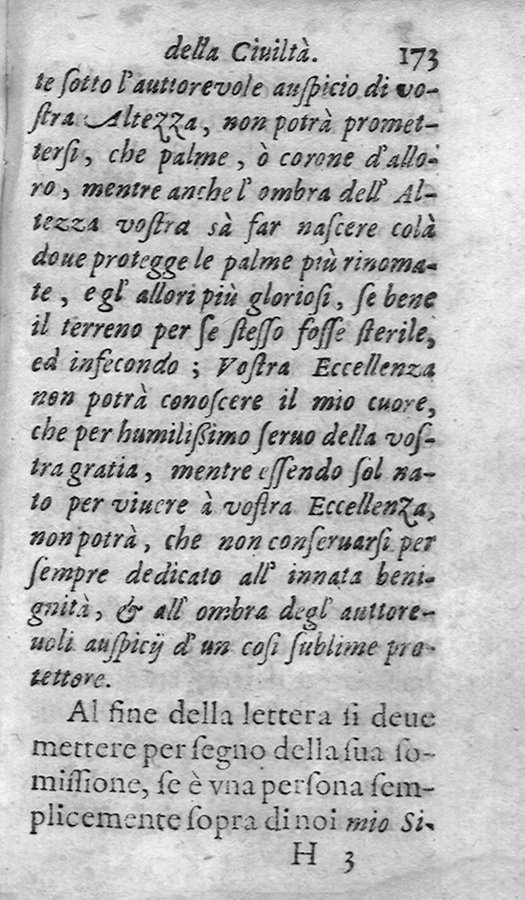 della Ciuiltà. 173
te ſotto l'auttorevole auſpicio di vo-
ſtra Altezza, non potrà promet-
terſi, che palme, ò corone d'allo-
ro, mentre anche l'ombra dell' Al-
tezza voſtra sà far naſcere colà
doue protegge le palme più rinoma-
te, e gl' allori più glorioſi, ſe bene
il terreno per ſe ſteſſo foſſe ſterile,
ed infecondo; Voſtra Eccellenza
non potrà conoſcere il mio cuore,
che per humilißimo ſeruo della voſ-
tra gratia, mentre eſſendo ſol na-
to per viuere à voſtra Eccellenza,
non potrà, che non conſeruarſi per
ſempre dedicato all' innata beni-
gnità, & all' ombra degl' auttore-
uoli auſpicij d'un coſi ſublime pro-
tettore.
Al fine della lettera ſi deue
mettere per ſegno della ſua ſo-
miſſione, ſe è vna perſona ſem-
plicemente ſopra di noi mio Si-
H 3